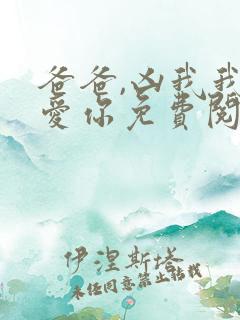 爸爸,凶我我
爱你免费阅
伊涅斯塔
未经同意禁止转载